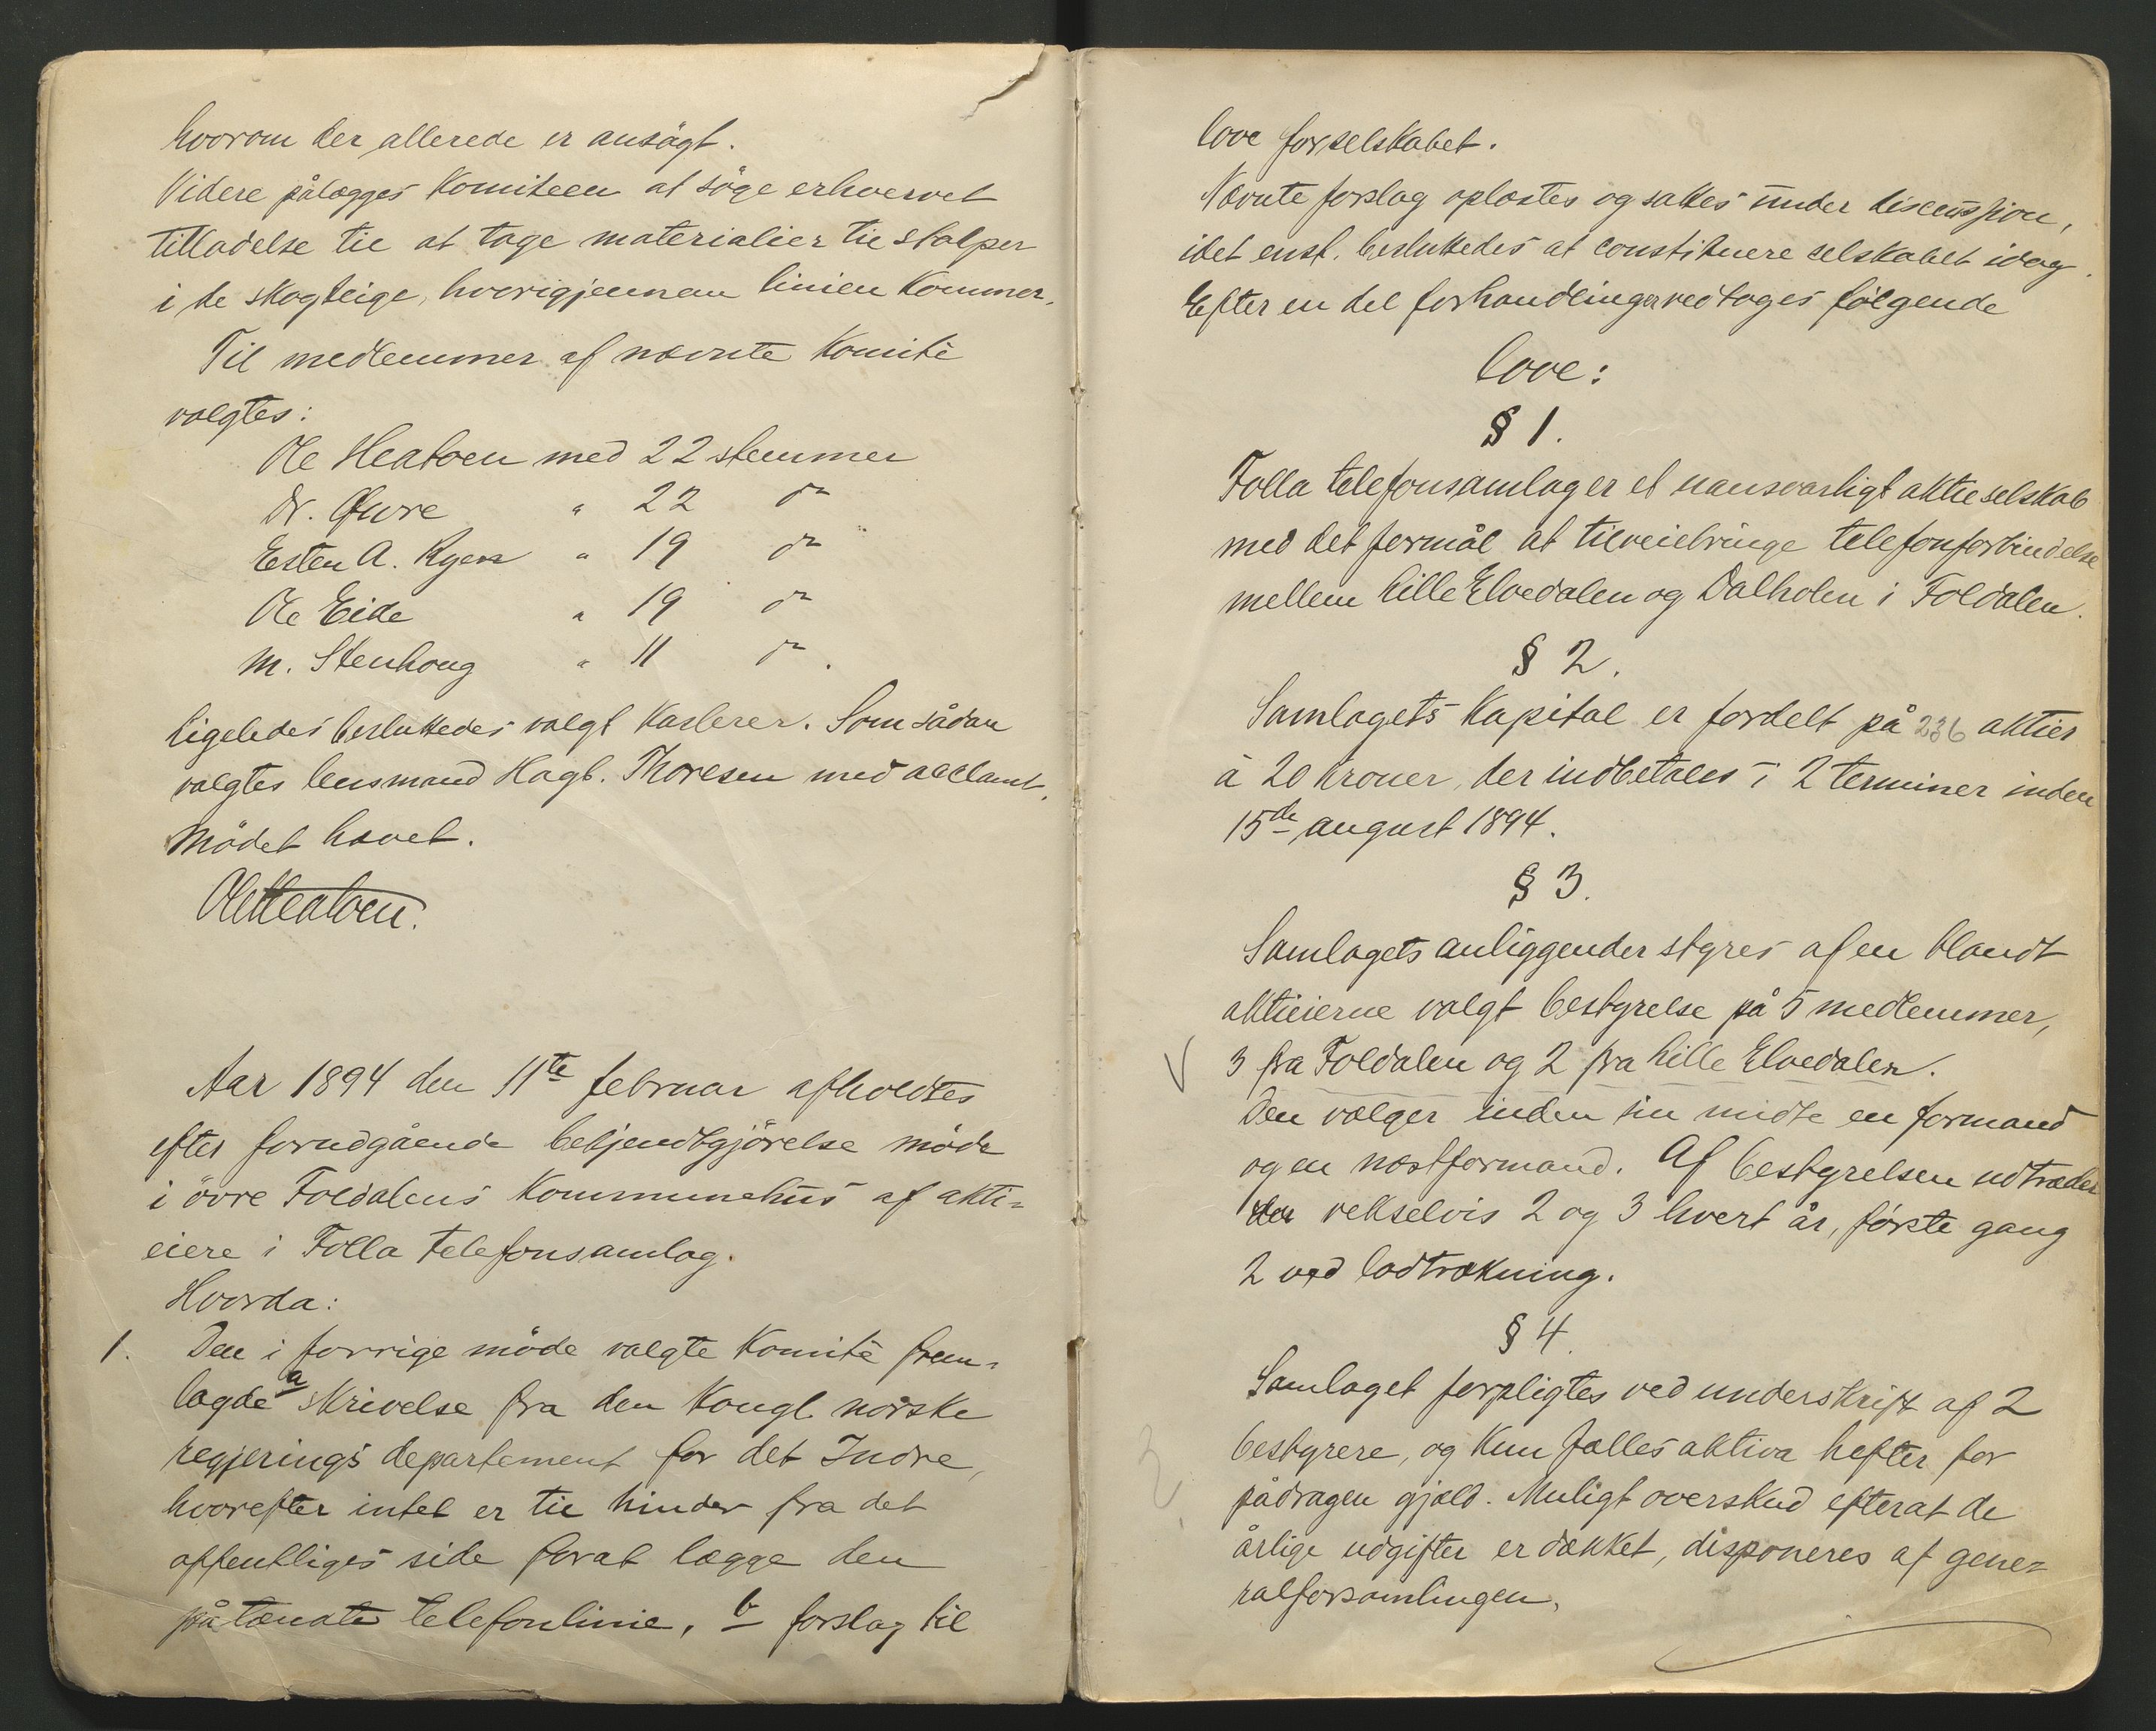 hvorom der allerede er ansögt.
Videre pålægges Komiteen at söge erhvervet
tilladelse til at tage materialier til stolper
i de skogteige, hvorigjennem linien kommer.
Til medlemmer af nævnte Komite
valgtes:
Ole Heatoen med 22 stemmer
Dr. " 22 do
Esten A. Ryen " 19 do
Ole Eide " 19 do
M. Stenhoug " 11 do.
Ligeledes besluttedes valgt Kaserer. Som sådan
valgtes lensmand Hagb. Thoresen med acclamt.
Mödet hævet.
Ole Heatoen.
Aar 1894 den 11te februar afholdtes
efter forudgående bekjendtgjörelse möde
i övre Foldalens Kommunehus af akti-
eiere i Folla telefonsamlag.
Hvorda:
1. Den i forrige möde valgte Komitè frem-
lagde a skrivelse fra den Kongl. norske
regjerings departement for det Indre,
hvorefter intet er til hinder fra det
offentliges side forat lægge den
påtænkte telefonlinie, b forslag til
love for selskabet.
Nævnte forslag oplæstes og sattes under discussion,
idet enst. besluttedes at constituere selskabet idag.
Efter en del forhandlinger vedtoges følgende
love:
§ 1.
Folla telefonsamlag er et uansvarligt aktieselskab
med det formål at tilveiebringe telefonforbindelse
mellem Lille Elvedalen og Dalholen i Foldalen.
§ 2.
Samlagets Kapital er fordelt på 236 aktier
à 20 Kroner, der indbetales i 2 terminer inden
15de august 1894.
§ 3.
Samlagets anliggender styres af en blandt
aktieierne valgt bestyrelse på 5 medlemmer,
3 fra Foldalen og 2 fra Lille Elvedalen.
Den vælger inden sin midte en formand
og en næstformand. Af bestyrelsen udtræder
der vekselvis 2 og 3 hvert år, første gang
2 ved lodtrækning.
§ 4.
Samlaget forpligtes ved underskrift af 2
bestyrere, og kun fælles aktiva hefter for
pådragen gjæld. Muligt overskud efterat de
årlige udgifter er dækket, disponeres af gene-
ralforsamlingen.